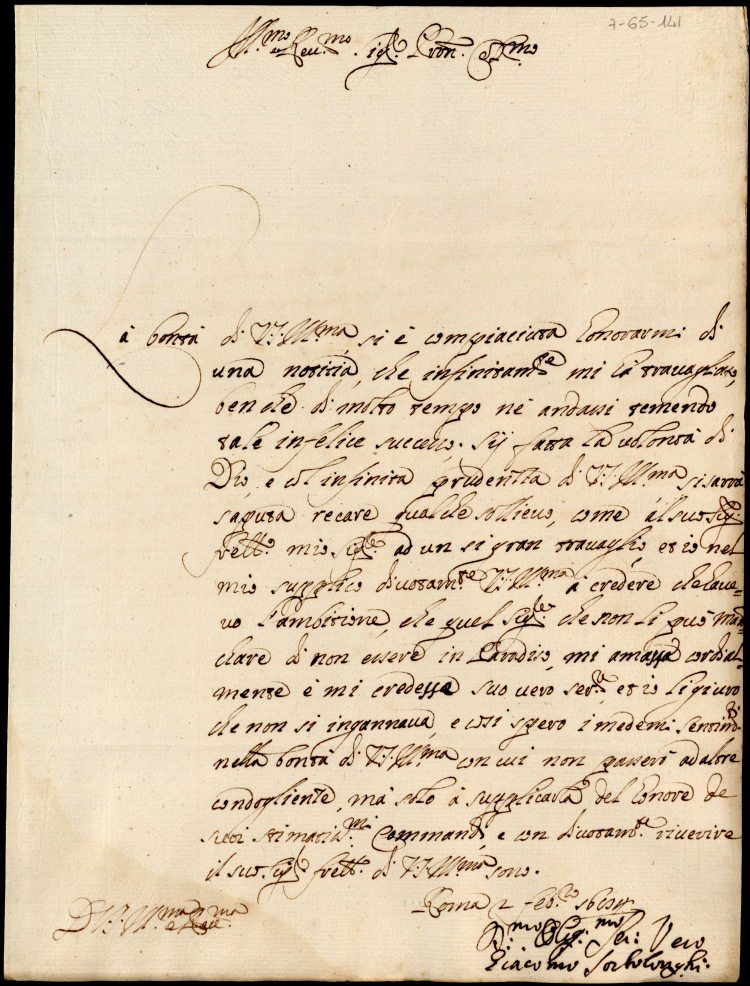 7-65-141
Ill.mo e Reu.mo Sig.re Pron. Col.mo
La bontà di V.S. Ill.ma si è compiaciuta honorarmi di
una notitia, che infinitam.te mi hà trauagliato,
benche di molto tempo nè andassi temendo
tale infelice successo. Sij fatta la volontà di
Dio, e col infinita prudentia di V.S. Ill.ma si sarà
saputa recare qualche sollieuo, come al suo Sig.
frell.o mio Sig.re ad un si gran trauaglio, et io nel
mio supplico diuotam.te V.S. Ill.ma à credere che haue-
uo l'ambitione, che quel Sig.re che non li può man
chare di non essere in Paradiso, mi amasse cordial-
mente è mi credesse suo uero ser.re, et io li giuro
che non si ingannaua, e cosi spero i medemi sentim.ti
nella bontà di V.S. Ill.ma con cui non passerò ad altre
condogliente, mà solo à supplicarla del honore de
suoi stimatiss.mi Commandi, e con diuotam.te riuerire
il suo Sig. frell. di V.S. Ill.ma sono.
Roma 2 Feb.ro
D. V.S. Ill.ma e Reu.ma
D.mo Oblig.mo Ser: Vero
Giacomo Sorbolonghi.